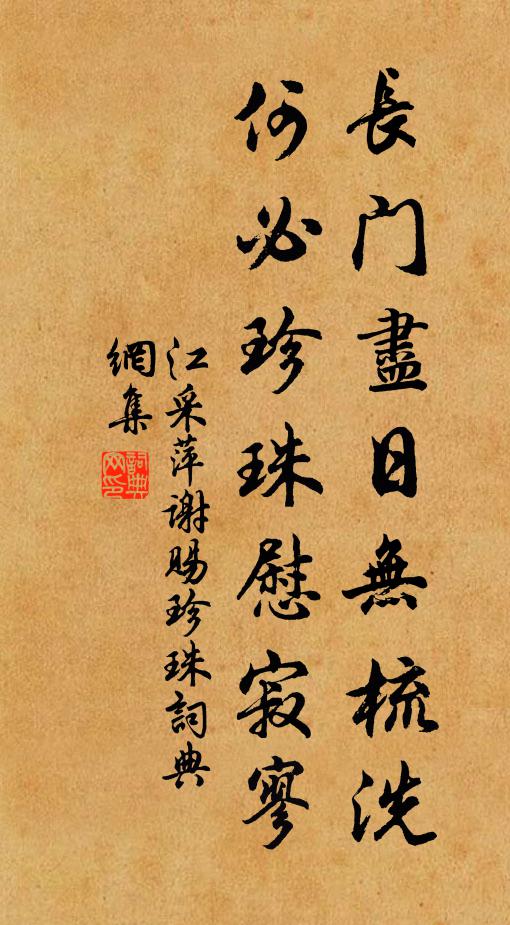 長門盡日無梳洗
何必珍珠慰寂寥
江采萍謝賜珍珠詞典
網集